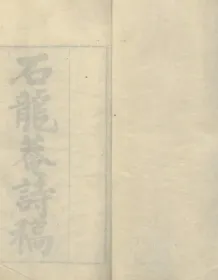 石龍菴詩稿